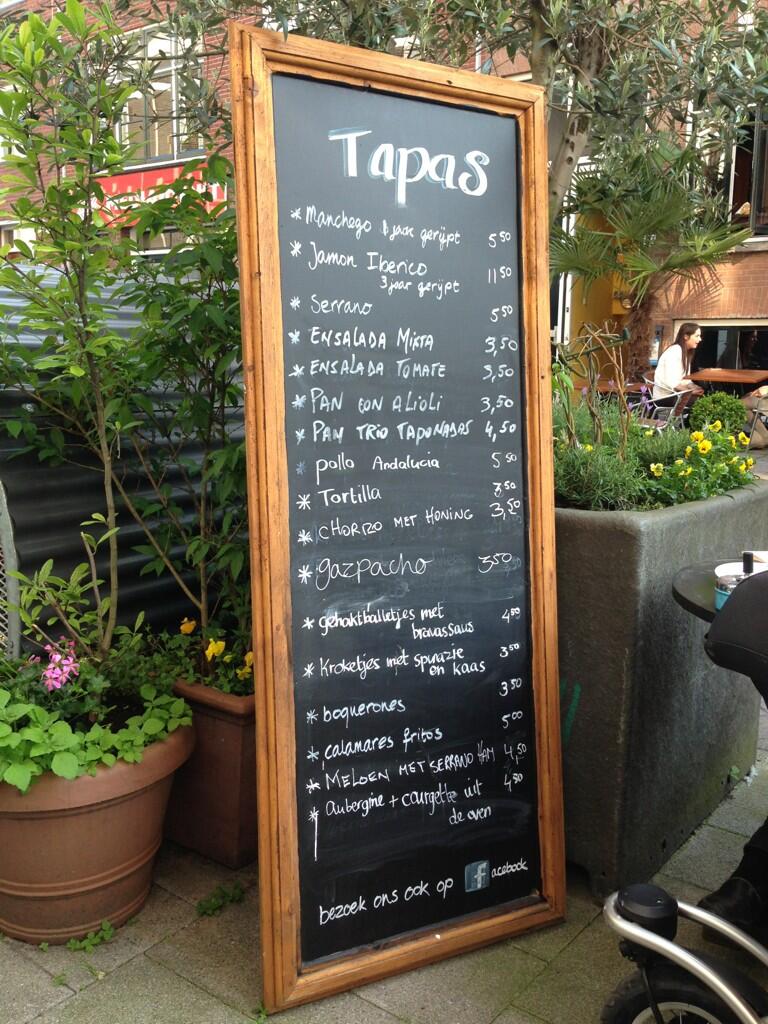 Tapas
* Manchego 1 jaar gerijpt 5 50
* Jamon Iberico 11 50
3 jaar gerijpt
* Serrano 5 50
* ENSALADA MIXTA 3,50
* ENSALADA TOMATE 3,50
* PAN CON ALIOLI 3,50
* PAN TRIO TAPONADAS 4,50
* pollo Andalucia 5 50
* Tortilla 3 50
* CHORIZO MET HONING 3,50
* gazpacho 3 50
* gehaktballetjes met 4 50
bravassaus
* Kroketjes met spinazie 3 50
en kaas
* boquerones 3 50
* calamares fritos 5 00
* MELOEN MET SERRANO HAM 4,50
* Aubergine + courgette uit 4 50
de oven
bezoek ons ook op facebook